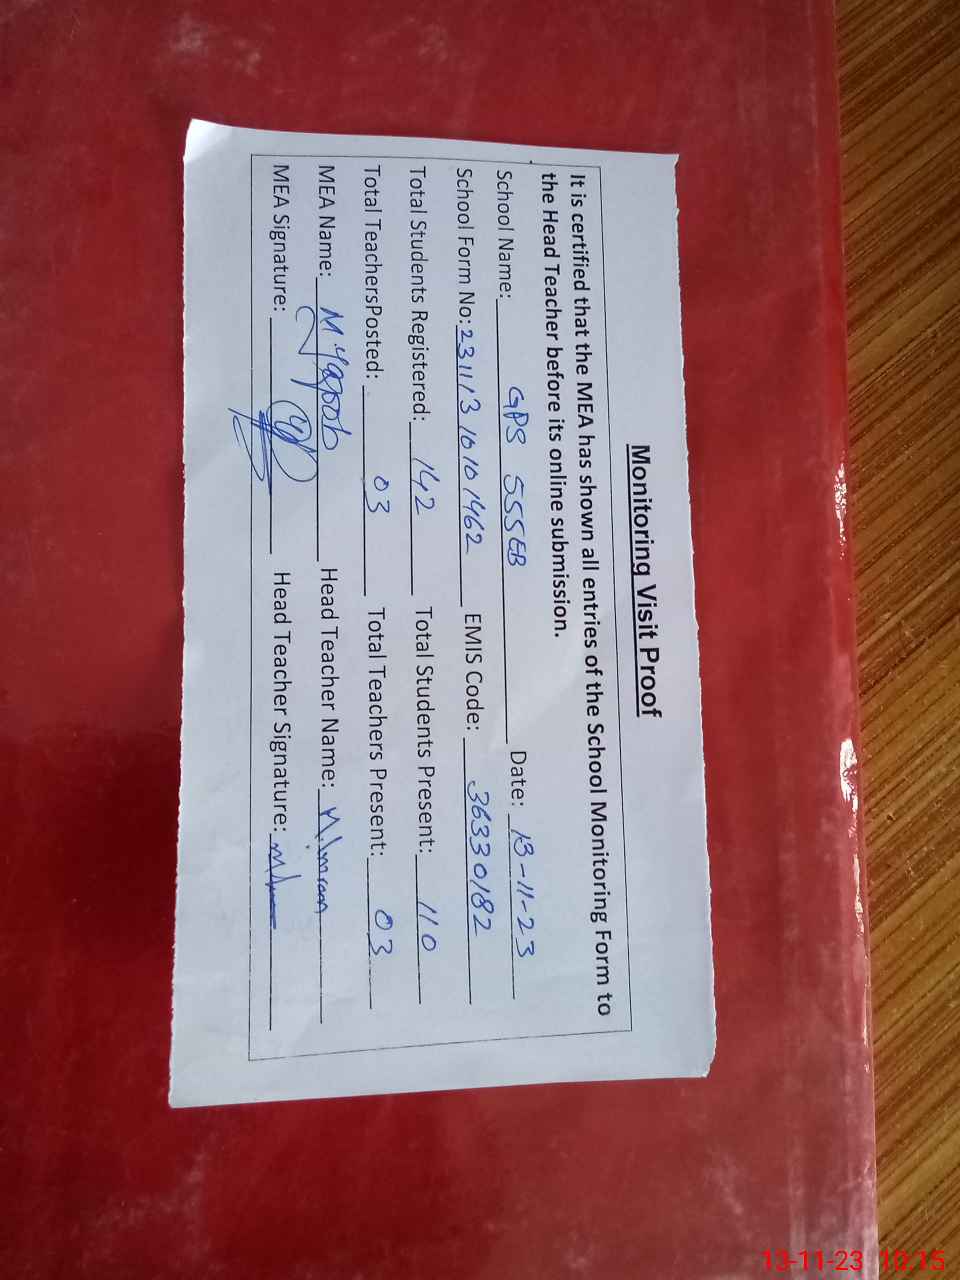 Monitoring Visit Proof
It is certified that the MEA has shown all entries of the School Monitoring Form to
the Head Teacher before its online submission.
School Name: GPS 555EB Date: 13-11-23
School Form No: 231113 10101462 EMIS Code: 36330182
Total Students Registered: 142 Total Students Present: 110
Total TeachersPosted: 03 Total Teachers Present: 03
MEA Name: M. Yaqoob Head Teacher Name: M. Imran
MEA Signature: Head Teacher Signature:
13-11-23 10:15